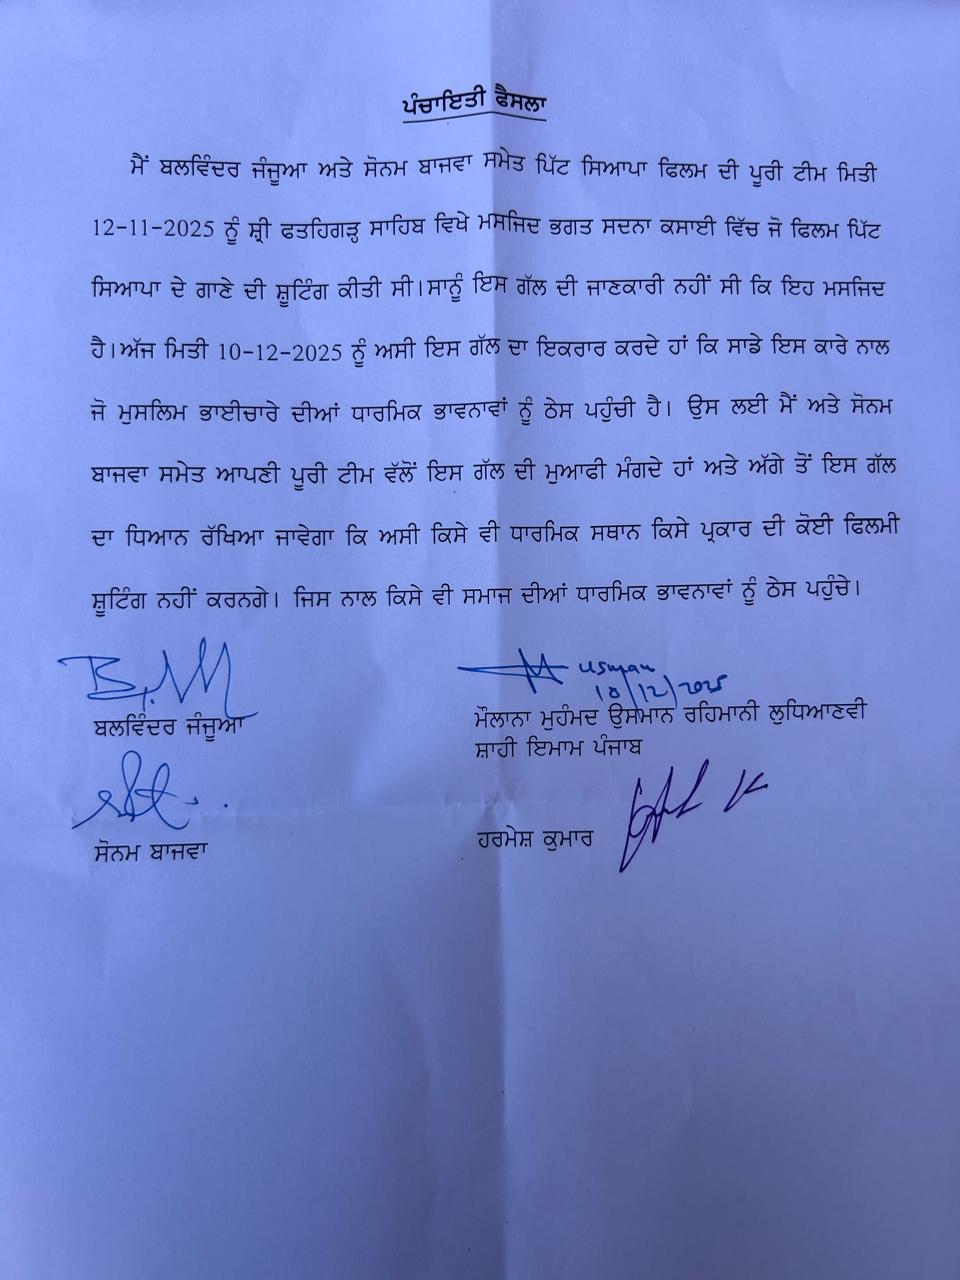 ਪੰਚਾਇਤੀ ਫੈਸਲਾ
ਮੈਂ ਬਲਵਿੰਦਰ ਜੰਜੂਆ ਅਤੇ ਸੋਨਮ ਬਾਜਵਾ ਸਮੇਤ ਪਿੱਟ ਸਿਆਪਾ ਫਿਲਮ ਦੀ ਪੂਰੀ ਟੀਮ ਮਿਤੀ
12-11-2025 ਨੂੰ ਸ਼੍ਰੀ ਫਤਹਿਗੜ੍ਹ ਸਾਹਿਬ ਵਿਖੇ ਮਸਜਿਦ ਭਗਤ ਸਦਨਾ ਕਸਾਈ ਵਿੱਚ ਜੋ ਫਿਲਮ ਪਿੱਟ
ਸਿਆਪਾ ਦੇ ਗਾਣੇ ਦੀ ਸ਼ੂਟਿੰਗ ਕੀਤੀ ਸੀ।ਸਾਨੂੰ ਇਸ ਗੱਲ ਦੀ ਜਾਣਕਾਰੀ ਨਹੀਂ ਸੀ ਕਿ ਇਹ ਮਸਜਿਦ
ਹੈ।ਅੱਜ ਮਿਤੀ 10-12-2025 ਨੂੰ ਅਸੀ ਇਸ ਗੱਲ ਦਾ ਇਕਰਾਰ ਕਰਦੇ ਹਾਂ ਕਿ ਸਾਡੇ ਇਸ ਕਾਰੇ ਨਾਲ
ਜੋ ਮੁਸਲਿਮ ਭਾਈਚਾਰੇ ਦੀਆਂ ਧਾਰਮਿਕ ਭਾਵਨਾਵਾਂ ਨੂੰ ਠੇਸ ਪਹੁੰਚੀ ਹੈ। ਉਸ ਲਈ ਮੈਂ ਅਤੇ ਸੋਨਮ
ਬਾਜਵਾ ਸਮੇਤ ਆਪਣੀ ਪੂਰੀ ਟੀਮ ਵੱਲੋਂ ਇਸ ਗੱਲ ਦੀ ਮੁਆਫੀ ਮੰਗਦੇ ਹਾਂ ਅਤੇ ਅੱਗੇ ਤੋਂ ਇਸ ਗੱਲ
ਦਾ ਧਿਆਨ ਰੱਖਿਆ ਜਾਵੇਗਾ ਕਿ ਅਸੀ ਕਿਸੇ ਵੀ ਧਾਰਮਿਕ ਸਥਾਨ ਕਿਸੇ ਪ੍ਰਕਾਰ ਦੀ ਕੋਈ ਫਿਲਮੀ
ਸ਼ੂਟਿੰਗ ਨਹੀਂ ਕਰਨਗੇ। ਜਿਸ ਨਾਲ ਕਿਸੇ ਵੀ ਸਮਾਜ ਦੀਆਂ ਧਾਰਮਿਕ ਭਾਵਨਾਵਾਂ ਨੂੰ ਠੇਸ ਪਹੁੰਚੇ।
usman
10/12/2025
ਬਲਵਿੰਦਰ ਜੰਜੂਆ
ਮੌਲਾਨਾ ਮੁਹੰਮਦ ਉਸਮਾਨ ਰਹਿਮਾਨੀ ਲੁਧਿਆਣਵੀ
ਸ਼ਾਹੀ ਇਮਾਮ ਪੰਜਾਬ
ਸੋਨਮ ਬਾਜਵਾ
ਹਰਮੇਸ਼ ਕੁਮਾਰ